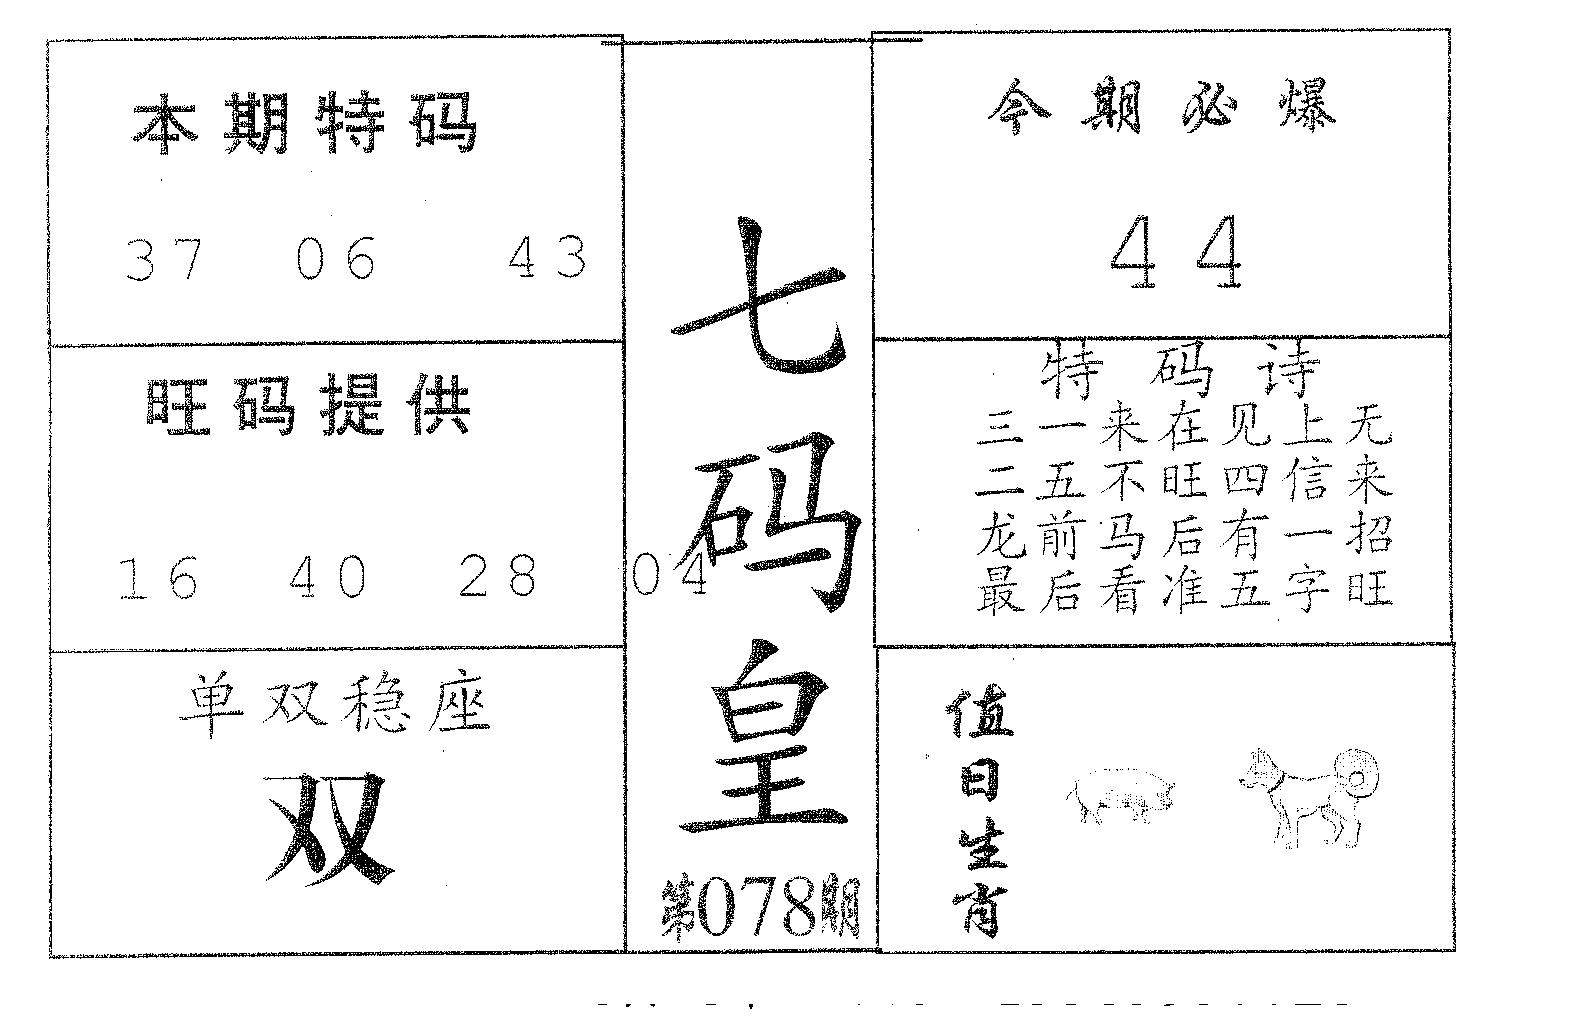 本期特码
37 06 43
旺码提供
16 40 28 04
单双稳座
双
七码皇
第078期
今期必爆
44
特码诗
三一来在见上无
二五不旺四信来
龙前马后有一招
最后看准五字旺
值日生肖